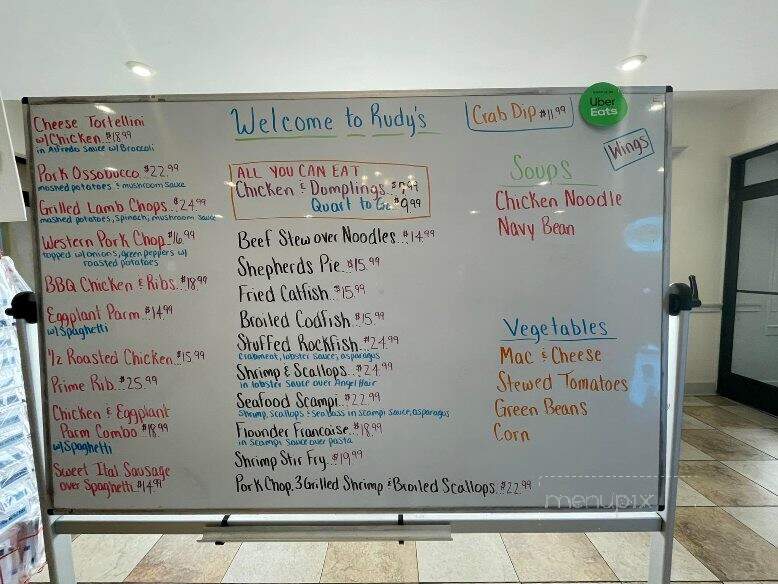 Cheese Tortellini
w/Chicken..$18.99
in Alfredo Sauce w/Broccoli
Pork Ossobucco.$22.99
mashed potatoes & mushroom sauce
Grilled Lamb Chops.$24.99
mashed potatoes, spinach, mushroom sauce
Western Pork Chop.$16.99
topped w/onions, green peppers w/
roasted potatoes
BBQ Chicken & Ribs.$18.99
Eggplant Parm..$14.99
w/Spaghetti
1/2 Roasted Chicken.$15.99
Prime Rib..$25.99
Chicken & Eggplant
Parm Combo $18.99
w/Spaghetti
Sweet Ital Sausage
over Spaghetti.$14.99
Welcome to Rudy's
ALL YOU CAN EAT
Chicken & Dumplings..
Quart to Go $9.99
Beef Stew over Noodles..$14.99
Shepherds Pie..$15.99
Fried Catfish..$15.99
Broiled Codfish..$15.99
Stuffed Rockfish..$24.99
Crabmeat, lobster sauce, asparagus
Shrimp & Scallops..$24.99
in lobster sauce over Angel Hair
Seafood Scampi..$22.99
Shrimp, scallops & Sea Bass in scampi sauce, asparagus
Flounder Francaise..$18.99
in scampi sauce over pasta
Shrimp Stir Fry..$19.99
Pork Chop, 3 Grilled Shrimp & Broiled Scallops..$22.99
Crab Dip $11.99
Uber
Eats
Wings
Soups
Chicken Noodle
Navy Bean
Vegetables
Mac & Cheese
Stewed Tomatoes
Green Beans
Corn
menupix